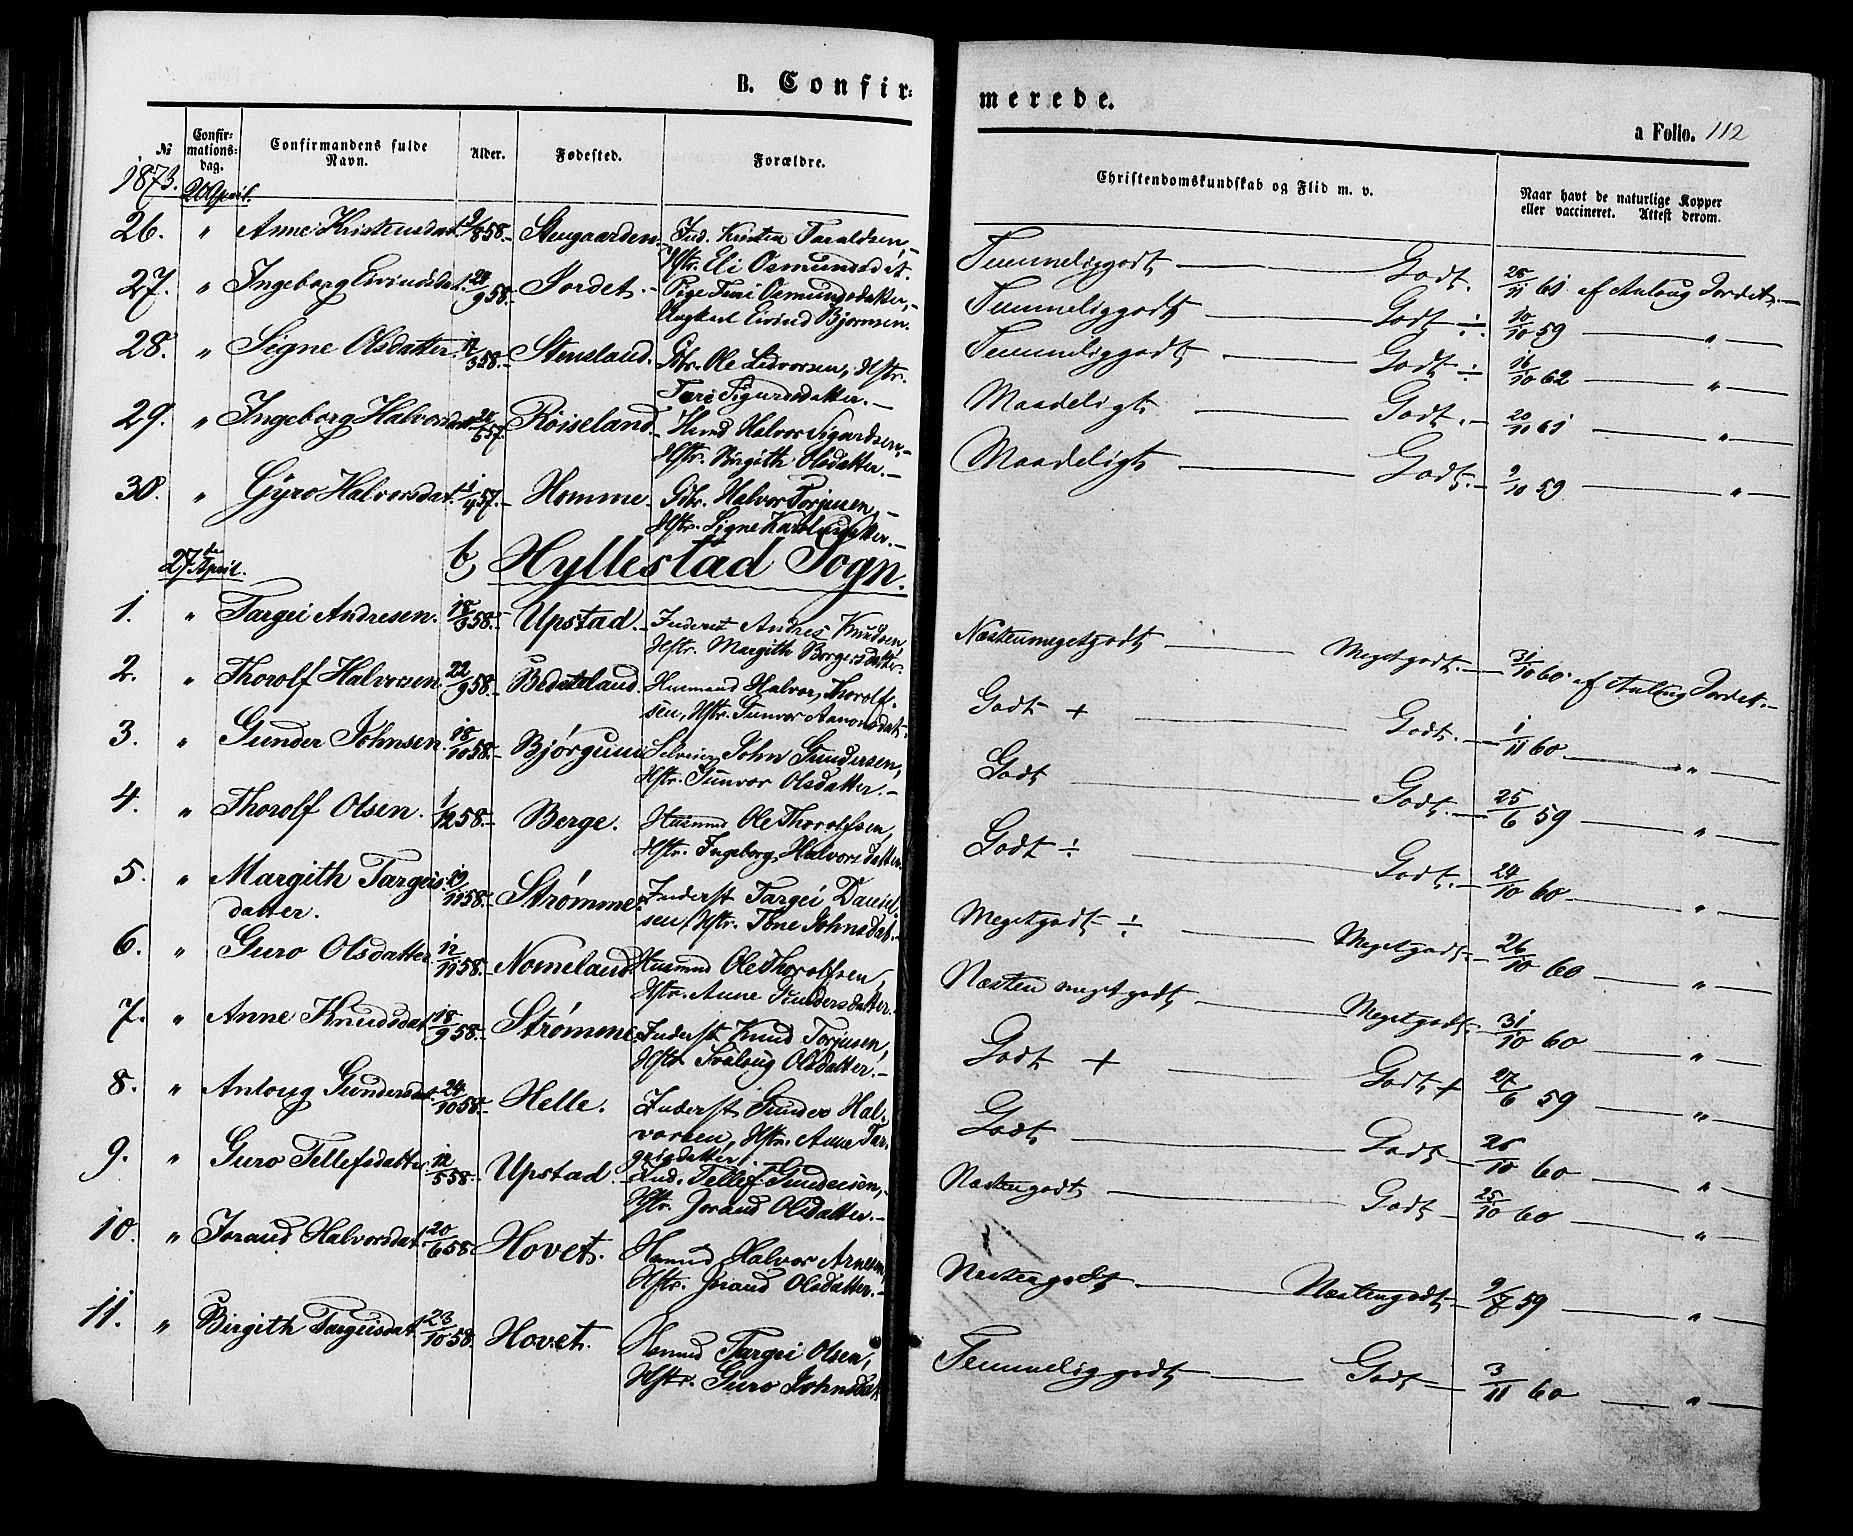 B. Confir=
merede.
a Folio. 112
№
Confir=
mations=
dag.
Confirmandens fulde
Navn.
Alder.
Fødested.
Forældre.
Christendomskundskab og Flid m. v.
Naar havt de naturlige Kopper
eller vaccineret. Attest derom.
1873.
20 April.
26. " Anne Kristensdat. 9/8 58.- Stengaarden.- Ind. Kristen Taraldsen,-
Hstr. Eli Osmundsdat.
Temmeliggodt — Godt. 25/11 61. af Anloug Jordet.—
27. " Ingeborg Eivindsdat. 24/9 58.- Jordet.- Pige Turi Osmundsdatter,-
Ungkarl Eivind Bjørnsen.
Temmeliggodt — Godt ÷ 10/10 59 — " —
28. " Signe Olsdatter. 3 58.- Stensland. Gbr. Ole Lidvorsen, Hstr.
Turi Sigurdsdatter.—
Temmeliggodt — Godt ÷ 16/10 62 — " —
29. " Ingeborg Halvorsdat. 5 57. Røiseland.- Hmd Halvor Sigurdsen,-
Hstr. Birgith Olsdatter.—
Maadeligt — Godt.- 20/11 61 — " —
30. " Gyro Halvorsdat. 57.- Homme. Gbr. Halvor Torjusen,-
Hstr. Signe datter.—
Maadeligt — Godt.- 2/10 59 — " —
27de April.
b, Hyllestad Sogn.
1. " Targei Andresen. 18/3 58.- Upstad.- Inderst Andres Knudsen,
Hstr. Margith Borgersdatter.
Næstenmegetgodt — Megetgodt.— 31/10 60. af Anloug Jordet.—
2. " Thorolf Halvorsen. 22/9 58.- Bedeteland. Husmand Halvor Thorolf-
sen, Hstr. Gunvor Aanonsdat.
Godt + — Godt.— 1/11 60 — " —
3. " Gunder Johnsen. 18/10 58.- Bjørgum Selveier John Gundersen,
Hstr. Gunvor Olsdatter.—
Godt — Godt.— 25/6 59 — " —
4. " Thorolf Olsen. 1/12 58.- Berge. Husmd Ole Thorolfsen,
Hstr. Ingeborg Halvorsdatter.
Godt ÷ — Godt.— 24/10 60 — " —
5. " Margith Targeis- 19/11 58.- Strømme. Inderst Targei Daniel-
datter. sen, Hstr. Tone Johnsdat.-
Megetgodt ÷ — Megetgodt 26/10 60 — " —
6. " Guro Olsdatter. 12/11 58.- Nomeland. Husmd Ole Thorolfsen,
Hstr. Anne Gundersdatter.
Næsten megetgodt — Megetgodt.- 31/10 60 — " —
7. " Anne Knudsdat. 18/9 58.- Strømme. Inderst Knud Torjusen,
Hstr Svaloug Olsdatter.—
Godt + — Godt + 27/6 59 — " —
8. " Anloug Gundersdat. 24/10 58.- Helle. Inderst Gunder Hal-
vorsen, Hstr. Anne Tar-
geisdatter.
Godt — Godt — 26/10 60 — " —
9. " Guro Tellefsdatter 12/5 58.- Upstad.- Ind. Tellef Gundersen,-
Hstr. Joraud Olsdatter.—
Næstengodt — Godt — 25/10 60 — " —
10. " Joraud Halvorsdat. 20/6 58. Hovet. Hsmd Halvor Arnesen,
Hstr. Joraud Olsdatter.—
Næstengodt — Næstengodt.— 9/7 59 — " —
11. " Birgith Targeisdat. 23/10 58. Hovet. Hsmd Targei Olsen,
Hstr. Guro Johnsdat
Temmeliggodt — Godt — 3/11 60 — " —